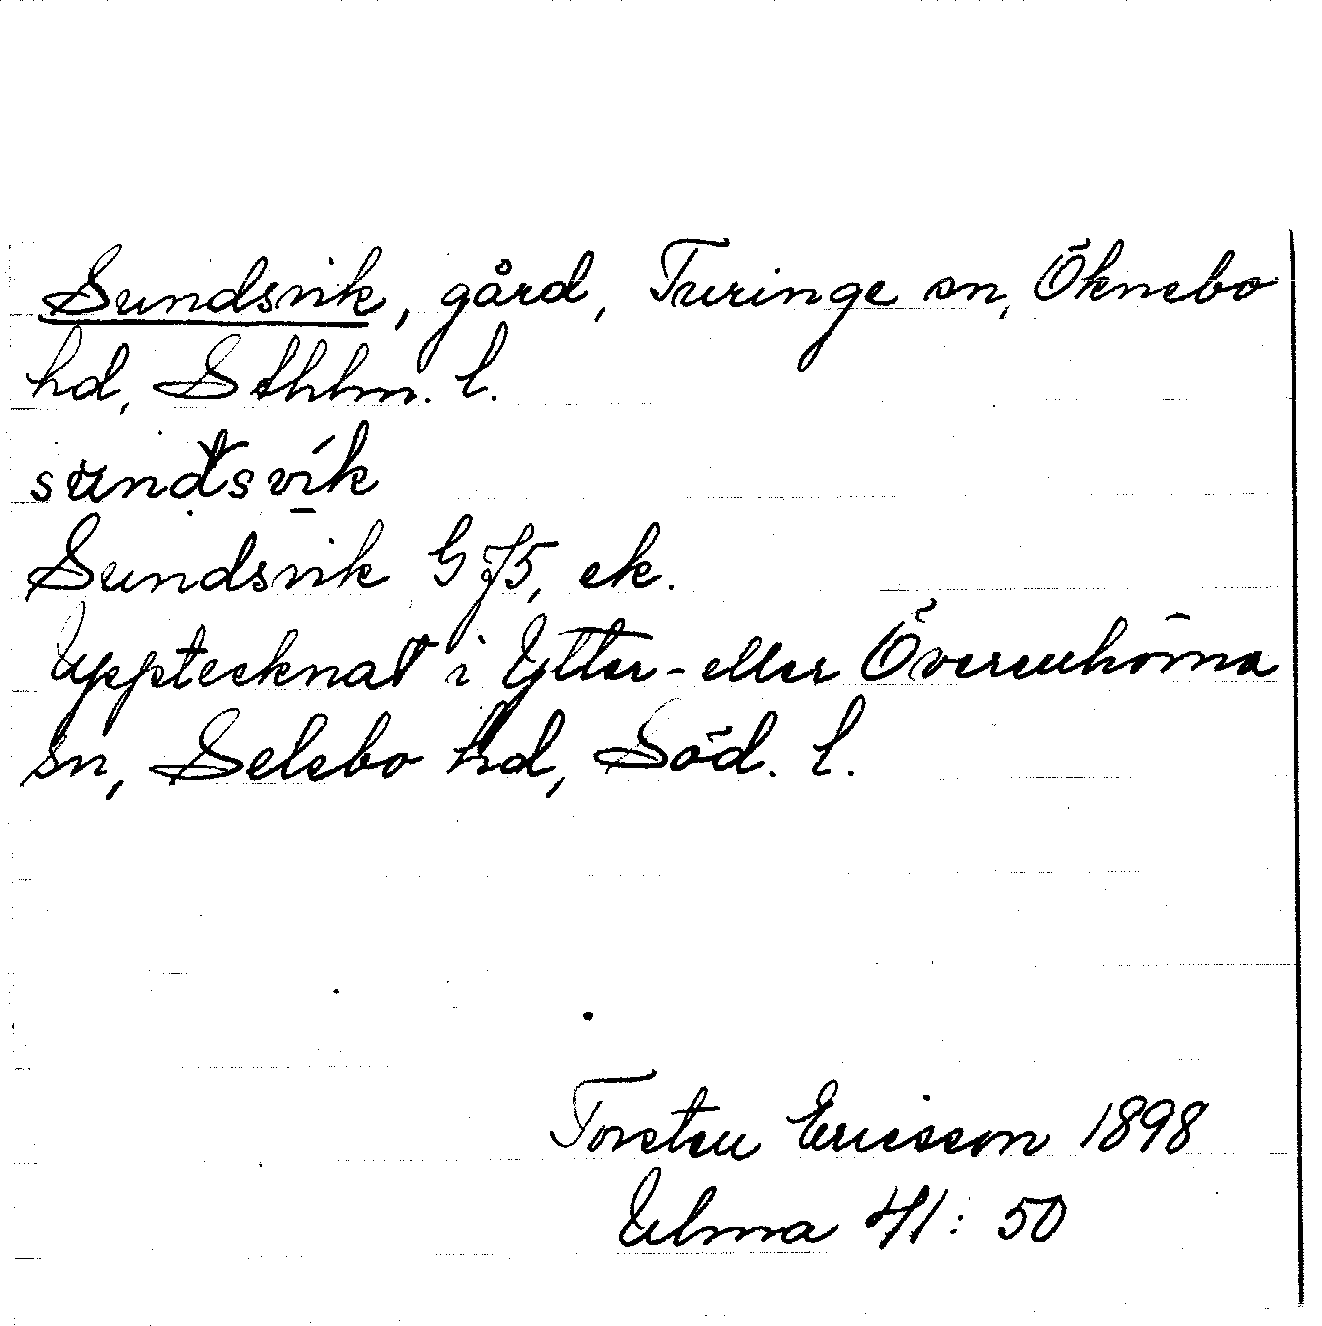 Sundsvik, gård, Turinge sn, Öknebo
hd, Sthlm. l.
sundsvik
Sundsvik G J5, ek.
Upptecknat i Ytter- eller Överenhörna
sn, Selebo hd, Söd. l.
Torsten Ericsson 1898
Ulma 41: 50